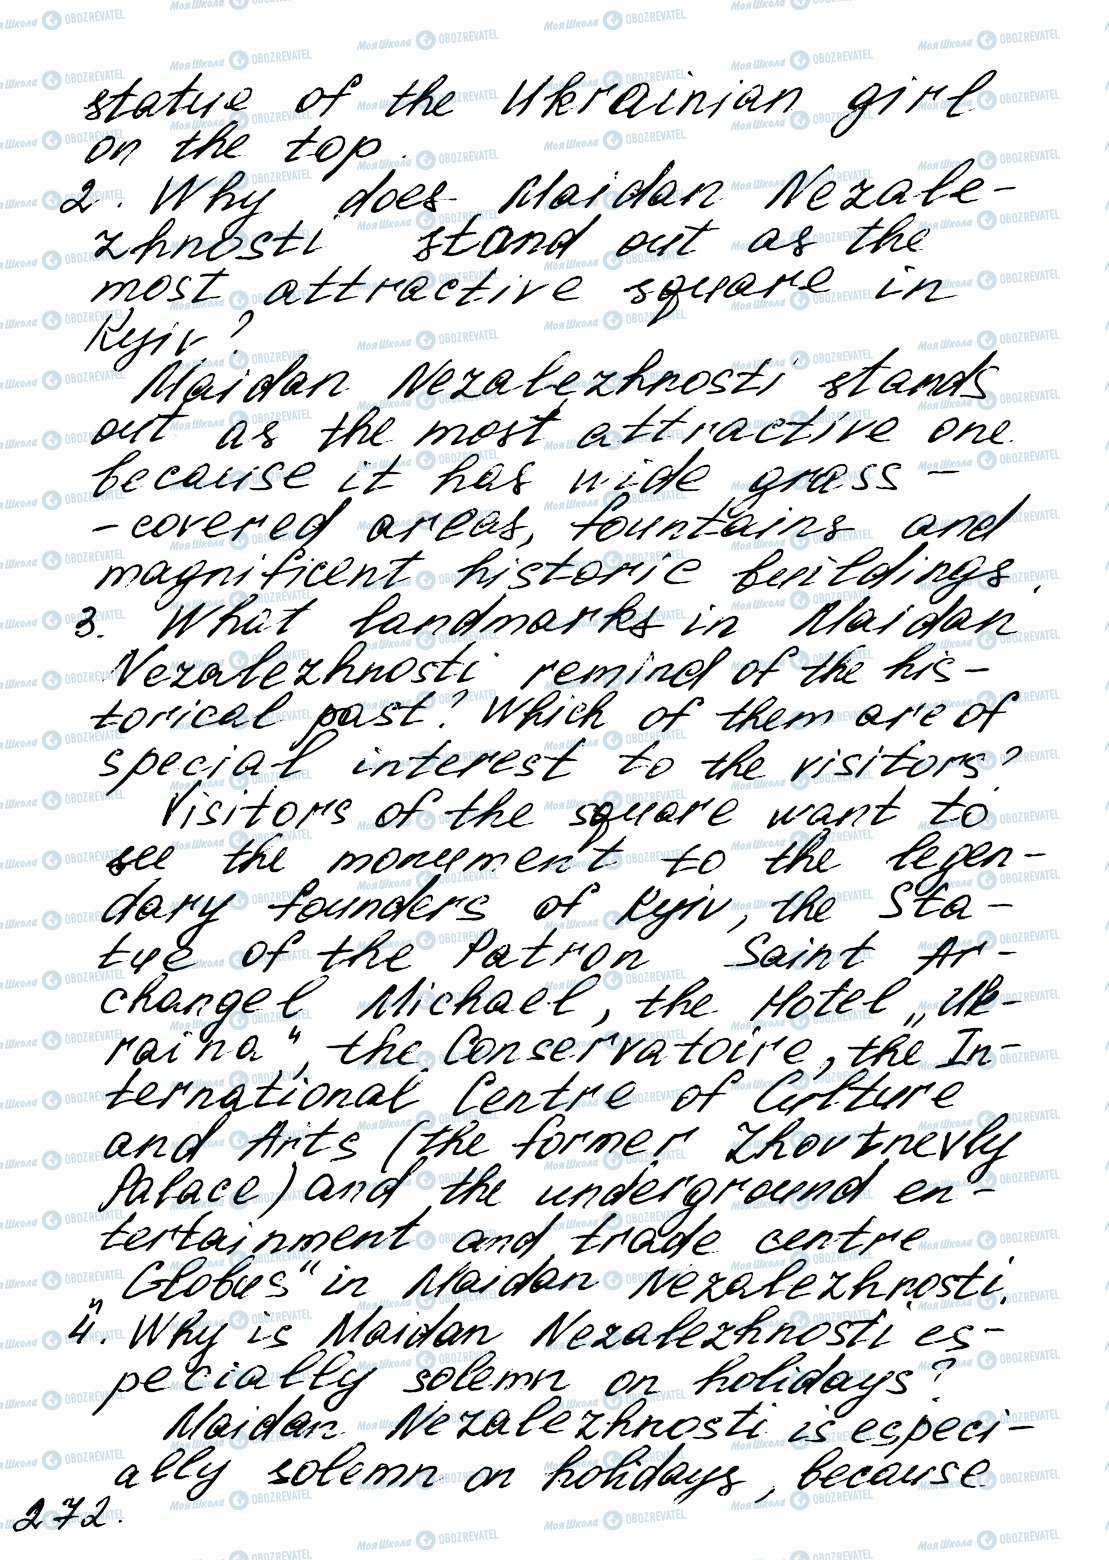 statue of the Ukrainian girl
on the top.
2. Why does Maidan Nezale-
zhnosti stand out as the
most attractive square in
Kyiv?
Maidan Nezalezhnosti stands
out as the most attractive one
because it has wide grass-
-covered areas, fountains and
magnificent historic buildings.
3. What landmarks in Maidan
Nezalezhnosti remind of the his-
torical past? Which of them are of
special interest to the visitors?
Visitors of the square want to
see the monument to the legen-
dary founders of Kyiv, the Sta-
tue of the Patron Saint Ar-
changel Michael, the Hotel „Uk-
raina“, the Conservatoire, the In-
ternational Centre of Culture
and Arts (the former Zhovtnevly
Palace) and the underground en-
tertainment and trade centre
„Globus“ in Maidan Nezalezhnosti.
4. Why is Maidan Nezalezhnosti es-
pecially solemn on holidays?
Maidan Nezalezhnosti is especi-
ally solemn on holidays, because
272.